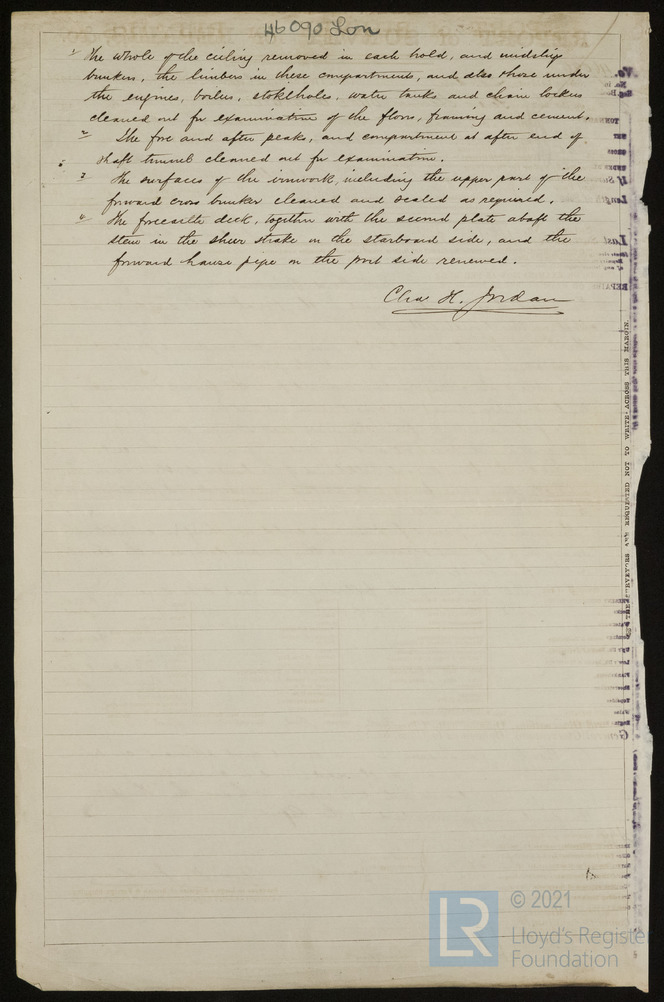 46090 Lon
1 The whole of the ceiling removed in each hold, and midship
bunkers, the limbers in these compartments, and also those under
the engines, boilers, stokeholes, water tanks and chain lockers
cleaned out for examination of the floors, framing and cement.
2 The fore and after peaks, and compartment at after end of
shaft tunnel cleaned out for examination.
3 The surfaces of the ironwork, including the upper part of the
forward cross bunker cleaned and scaled as required.
4 The forecastle deck, together with the second plate abaft the
stem in the sheer strake on the starboard side, and the
forward hause pipe on the port side renewed.
Chas H. Jordan
REQUESTED NOT TO WRITE ACROSS THIS MARGIN.
LR
© 2021
Lloyd's Register
Foundation